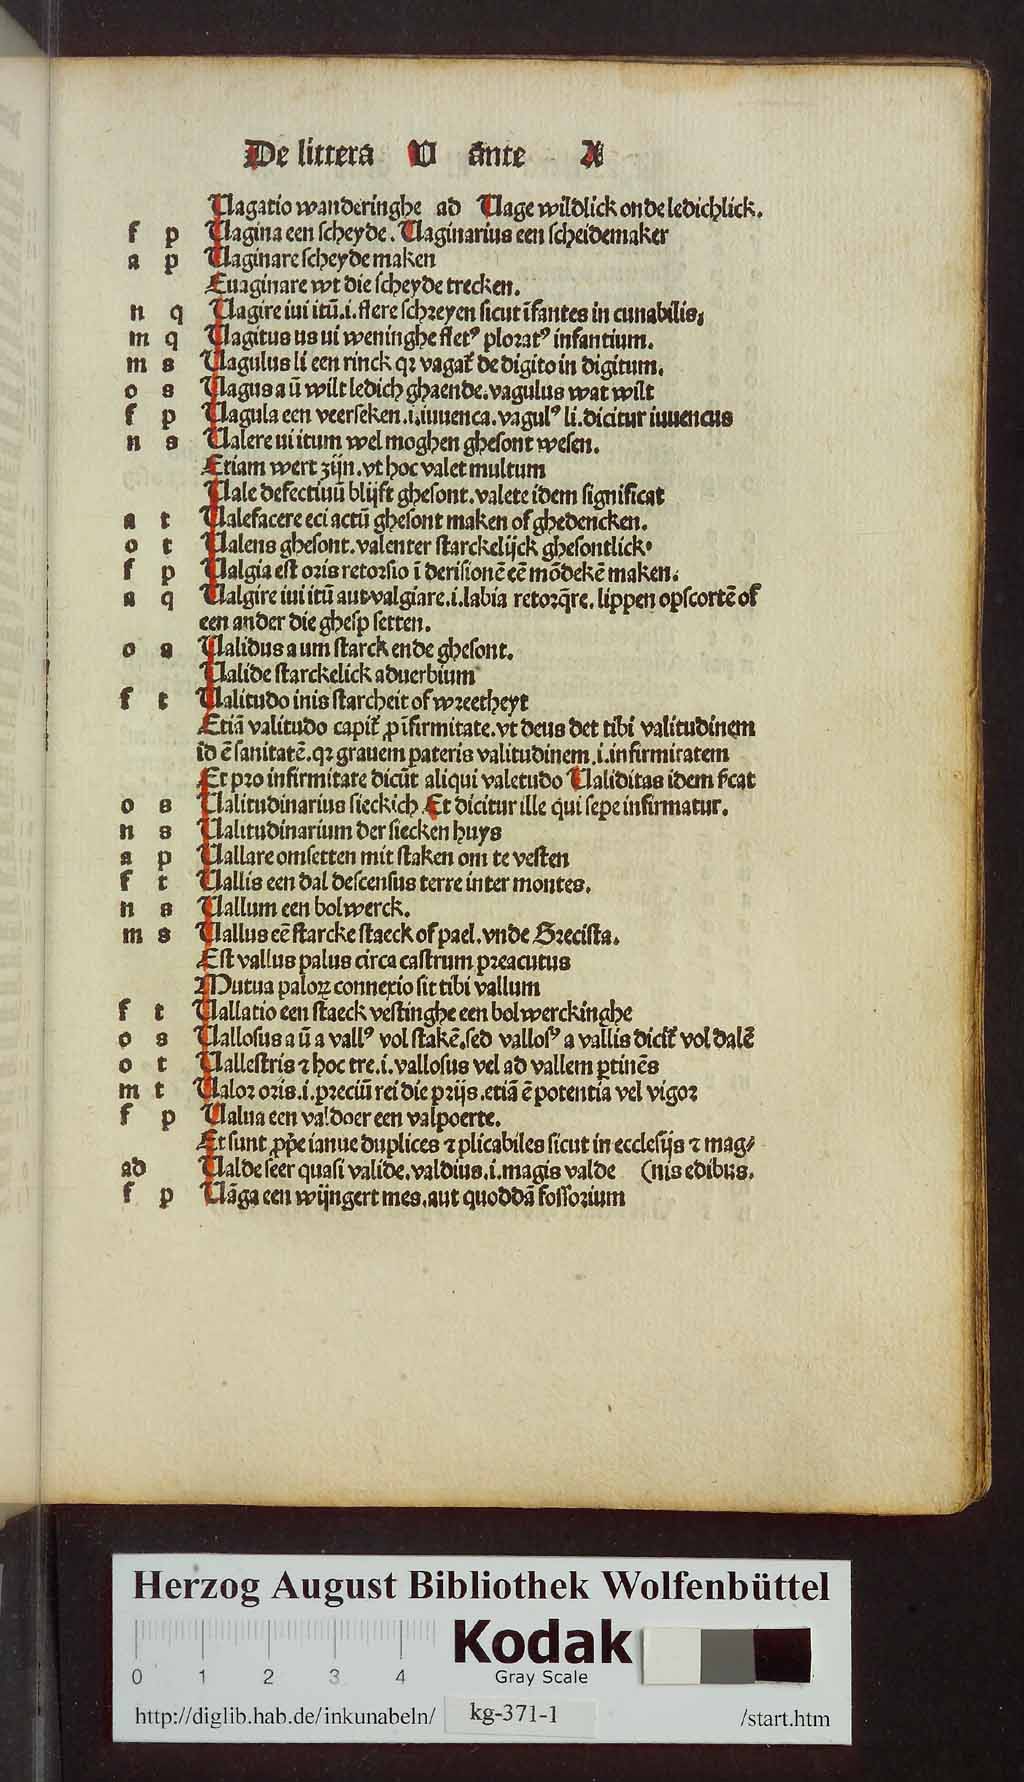 De littera V ante A
Uagatio wanderinghe ad Uage wildlick onde ledichlick.
f p Uagina een scheyde. Uaginarius een scheidemaker
a p Uaginare scheyde maken
Euaginare wt die scheyde trecken.
n q Uagire iui itū.i.flere schreyen sicut īfantes in cunabilis;
m q Uagitus us ui weninghe fletꝰ ploratꝰ infantium.
m s Uagulus li een rinck qꝛ vagat᷑ de digito in digitum.
o s Uagus a ū wilt ledich ghaende.vagulus wat wilt
f p Uagula een veerseken.i.iuuenca.vagulꝰ li.dicitur iuuencus
n s Ualere ui itum wel moghen ghesont wesen.
Etiam wert zijn.vt hoc valet multum
Uale defectiuū blijft ghesont.valete idem significat
a t Ualefacere eci actū ghesont maken of ghedencken.
o t Ualens ghesont.valenter starckelijck ghesontlick.
f p Ualgia est oris retorsio ī derisionē eē mōdekē maken.
a q Ualgire iui itū aut valgiare.i.labia retorq̄re.lippen opscortē of
een ander die ghesp setten.
o a Ualidus a um starck ende ghesont.
Ualide starckelick aduerbium
f t Ualitudo inis starcheit of wreetheyt
Etiā valitudo capit᷑ ꝓ īfirmitate.vt deus det tibi valitudinem
id ē sanitatē.qꝛ grauem pateris valitudinem.i.infirmitatem
Et pro infirmitate dicūt aliqui valetudo Ualiditas idem ficat
o s Ualitudinarius sieckich Et dicitur ille qui sepe infirmatur.
n s Ualitudinarium der siecken huys
a p Uallare omsetten mit staken om te vesten
f t Uallis een dal descensus terre inter montes.
n s Uallum een bolwerck.
m s Uallus eē starcke staeck of pael.vnde Grecista.
Est vallus palus circa castrum preacutus
Mutua paloꝝ connexio sit tibi vallum
f t Uallatio een staeck vestinghe een bolwerckinghe
o s Uallosus a ū a vallꝰ vol stakē.sed vallosꝰ a vallis dicit᷑ vol dalē
o t Uallestris ⁊ hoc tre.i.vallosus vel ad vallem ꝑtinēs
m t Ualor oris.i.preciū rei die prijs.etiā ē potentia vel vigor
f p Ualua een valdoer een valpoerte.
Et sunt ꝓpe ianue duplices ⁊ plicabiles sicut in ecclesijs ⁊ mag⸗
ad Ualde seer quasi valide.valdius.i.magis valde (nis edibus.
f p Uāga een wijngert mes.aut quoddā fossorium
Herzog August Bibliothek Wolfenbüttel
0 1 2 3 4
Kodak
Gray Scale
http://diglib.hab.de/inkunabeln/ kg-371-1 /start.htm